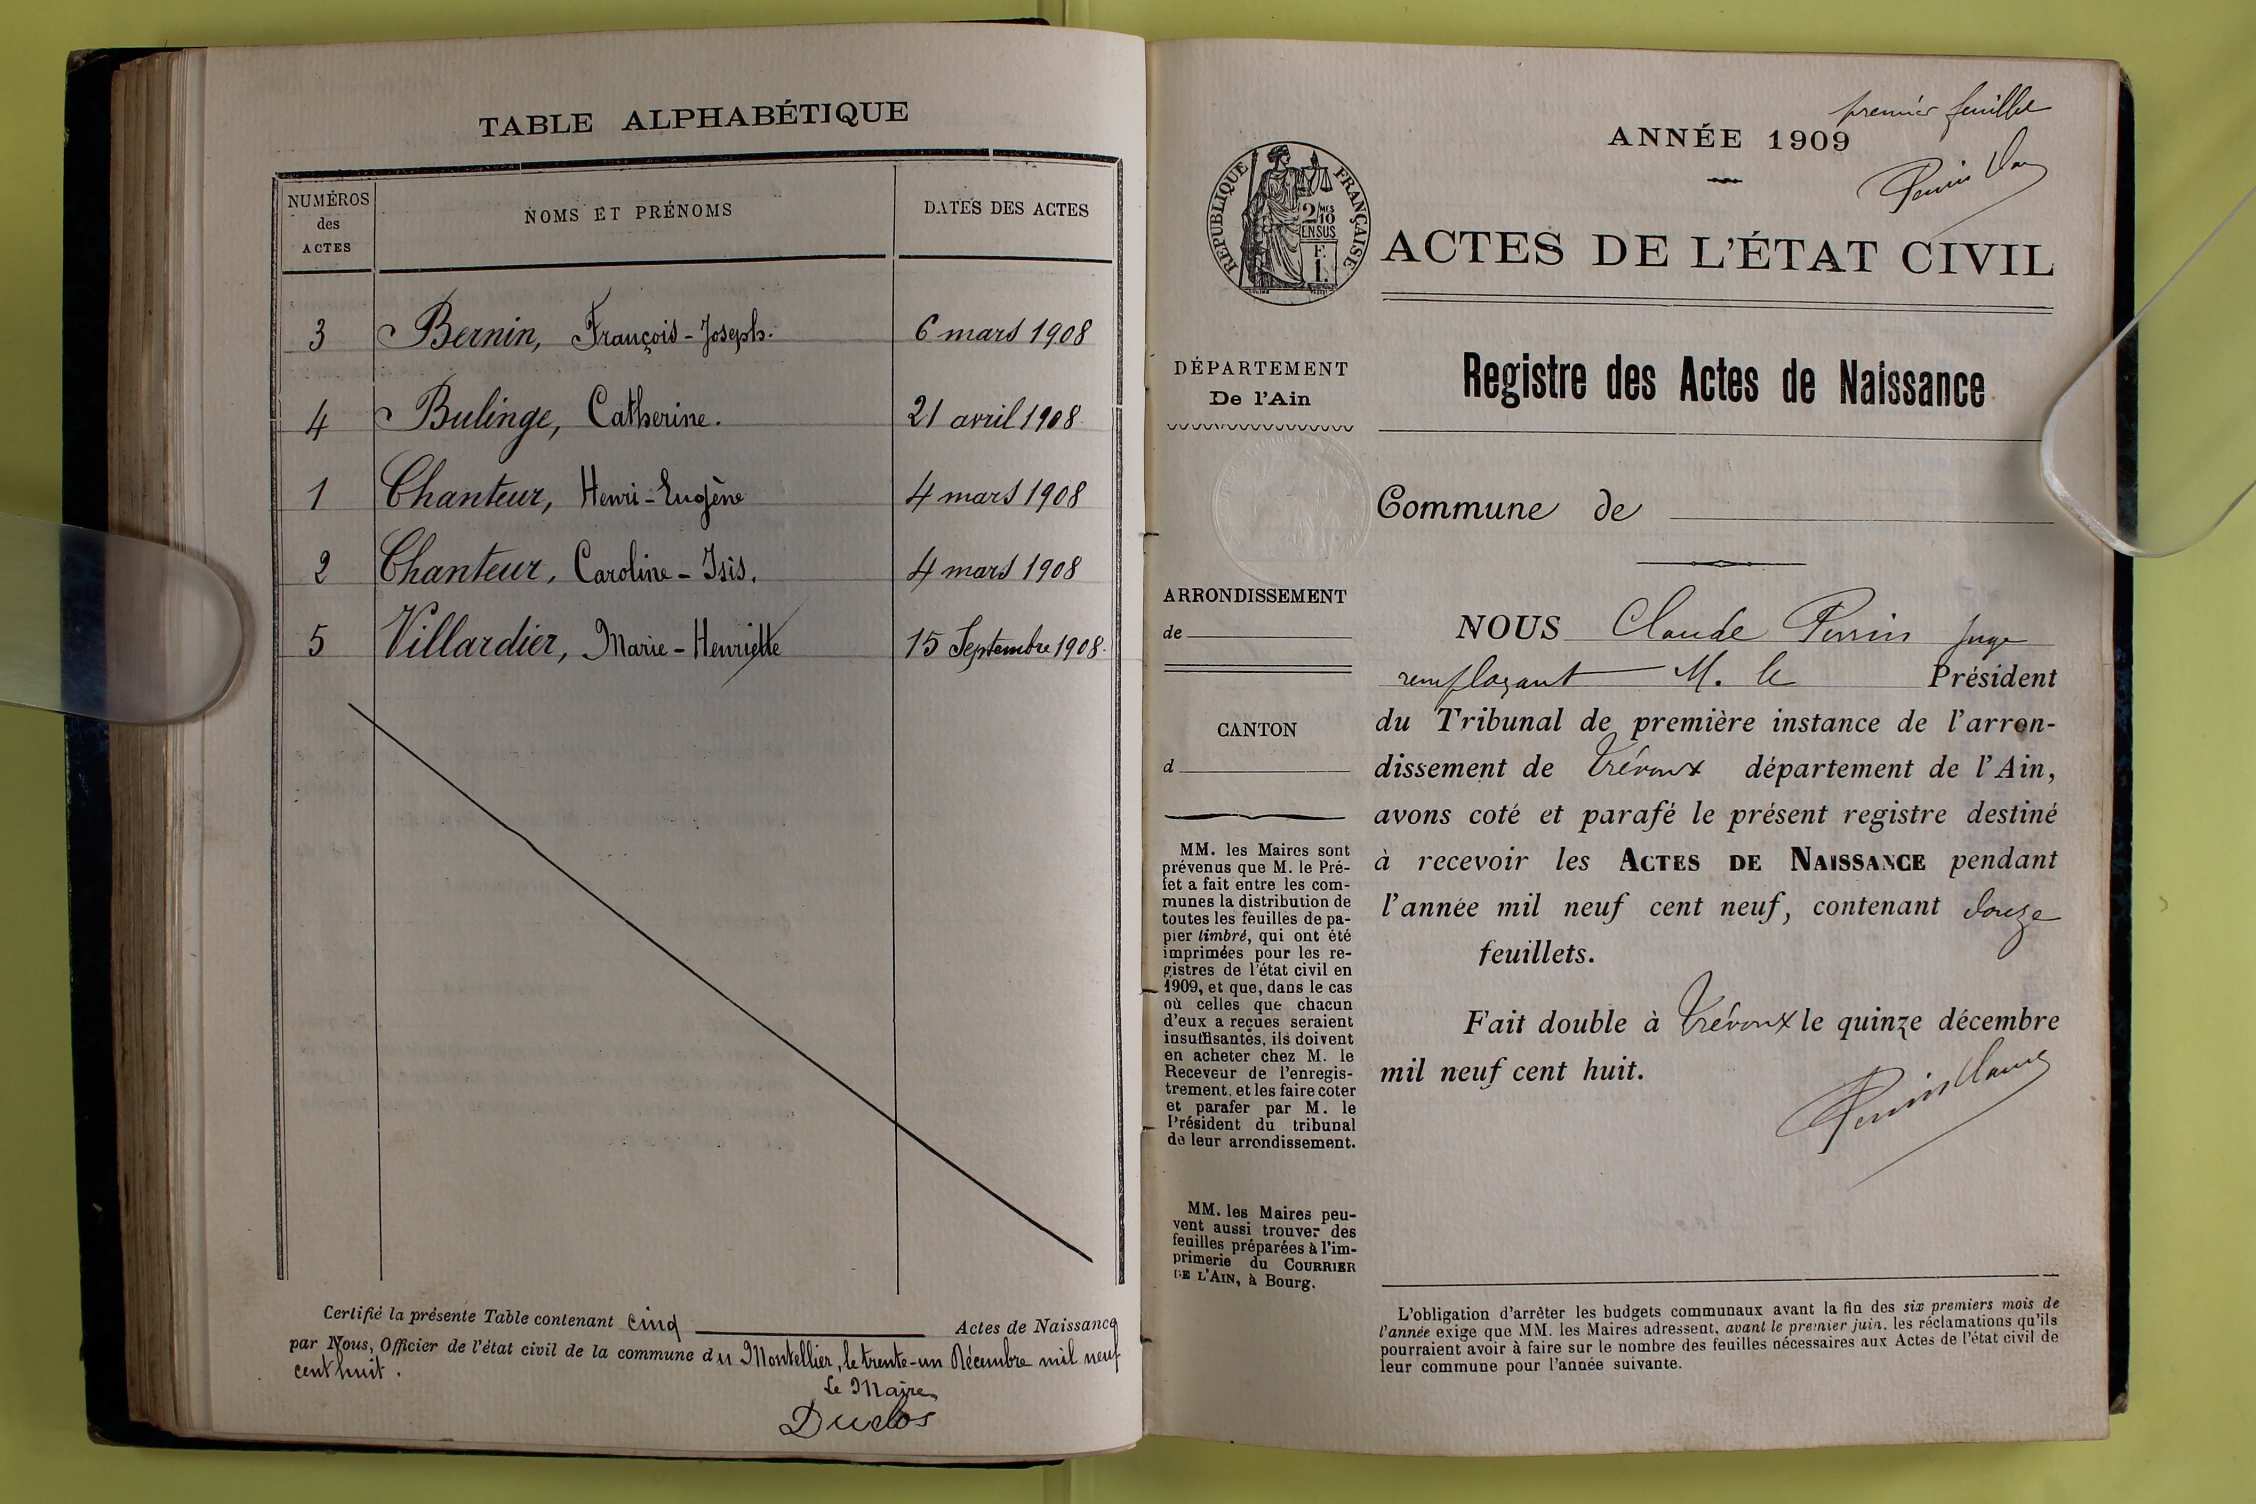 TABLE ALPHABÉTIQUE
NUMÉROS des ACTES NOMS ET PRÉNOMS DATES DES ACTES
3 Bernin, François-Joseph. 6 mars 1908
4 Bulinge, Catherine. 21 avril 1908
1 Chanteur, Henri-Eugène 4 mars 1908
2 Chanteur, Caroline-Isis. 4 mars 1908
5 Villardier, Marie-Henriette 15 Septembre 1908.
Certifié la présente Table contenant cinq Actes de Naissance
par Nous, Officier de l'état civil de la commune du Montellier, le trente-un Décembre mil neuf
cent huit.
Le Maire
Duclos
premier feuillet
ANNÉE 1909
RÉPUBLIQUE FRANÇAISE
2/10 MES
EN SUS
F.
1.
ACTES DE L'ÉTAT CIVIL
DÉPARTEMENT
De l'Ain
Registre des Actes de Naissance
Commune de
ARRONDISSEMENT
de
CANTON
d
MM. les Maires sont
prévenus que M. le Pré-
fet a fait entre les com-
munes la distribution de
toutes les feuilles de pa-
pier timbré, qui ont été
imprimées pour les re-
gistres de l'état civil en
1909, et que, dans le cas
où celles que chacun
d'eux a reçues seraient
insuffisantes, ils doivent
en acheter chez M. le
Receveur de l'enregis-
trement, et les faire coter
et parafer par M. le
Président du tribunal
de leur arrondissement.
MM. les Maires peu-
vent aussi trouver des
feuilles préparées à l'im-
primerie du COURRIER
DE L'AIN, à Bourg.
NOUS Claude Perrin juge
remplaçant M. le Président
du Tribunal de première instance de l'arron-
dissement de Trévoux département de l'Ain,
avons coté et parafé le présent registre destiné
à recevoir les ACTES DE NAISSANCE pendant
l'année mil neuf cent neuf, contenant douze
feuillets.
Fait double à Trévoux le quinze décembre
mil neuf cent huit.
L'obligation d'arrêter les budgets communaux avant la fin des six premiers mois de
l'année exige que MM. les Maires adressent, avant le premier juin, les réclamations qu'ils
pourraient avoir à faire sur le nombre des feuilles nécessaires aux Actes de l'état civil de
leur commune pour l'année suivante.